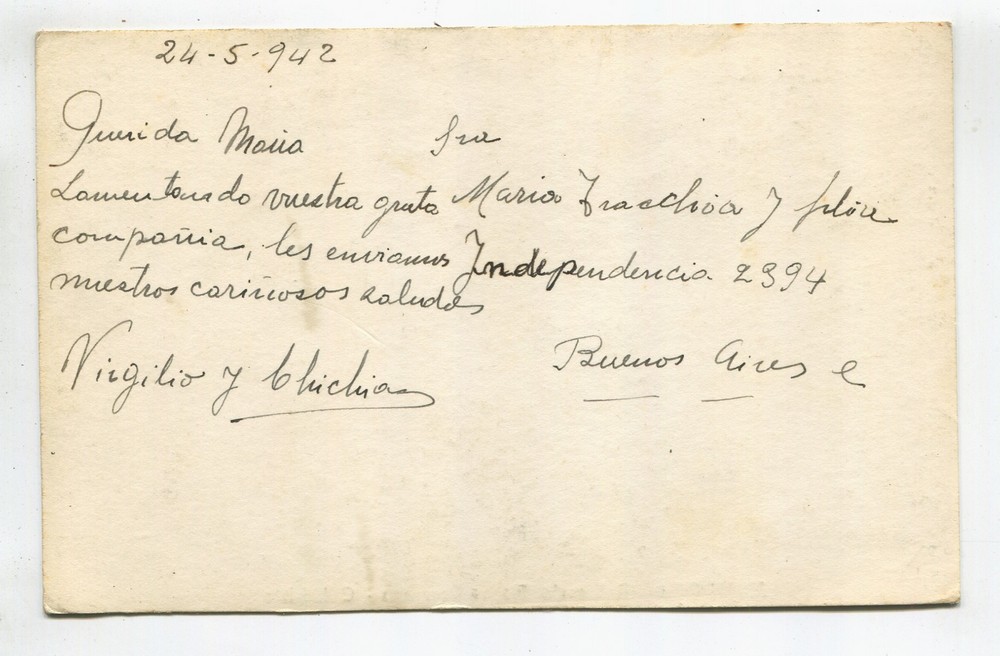 24-5-942
Querida Maria
Lamentando vuestra grata
compañia, les enviamos
nuestros cariñosos saludos
Virgilio y Chichia
Sra
Maria Fracchia y
Independencia 2394
Buenos Aires